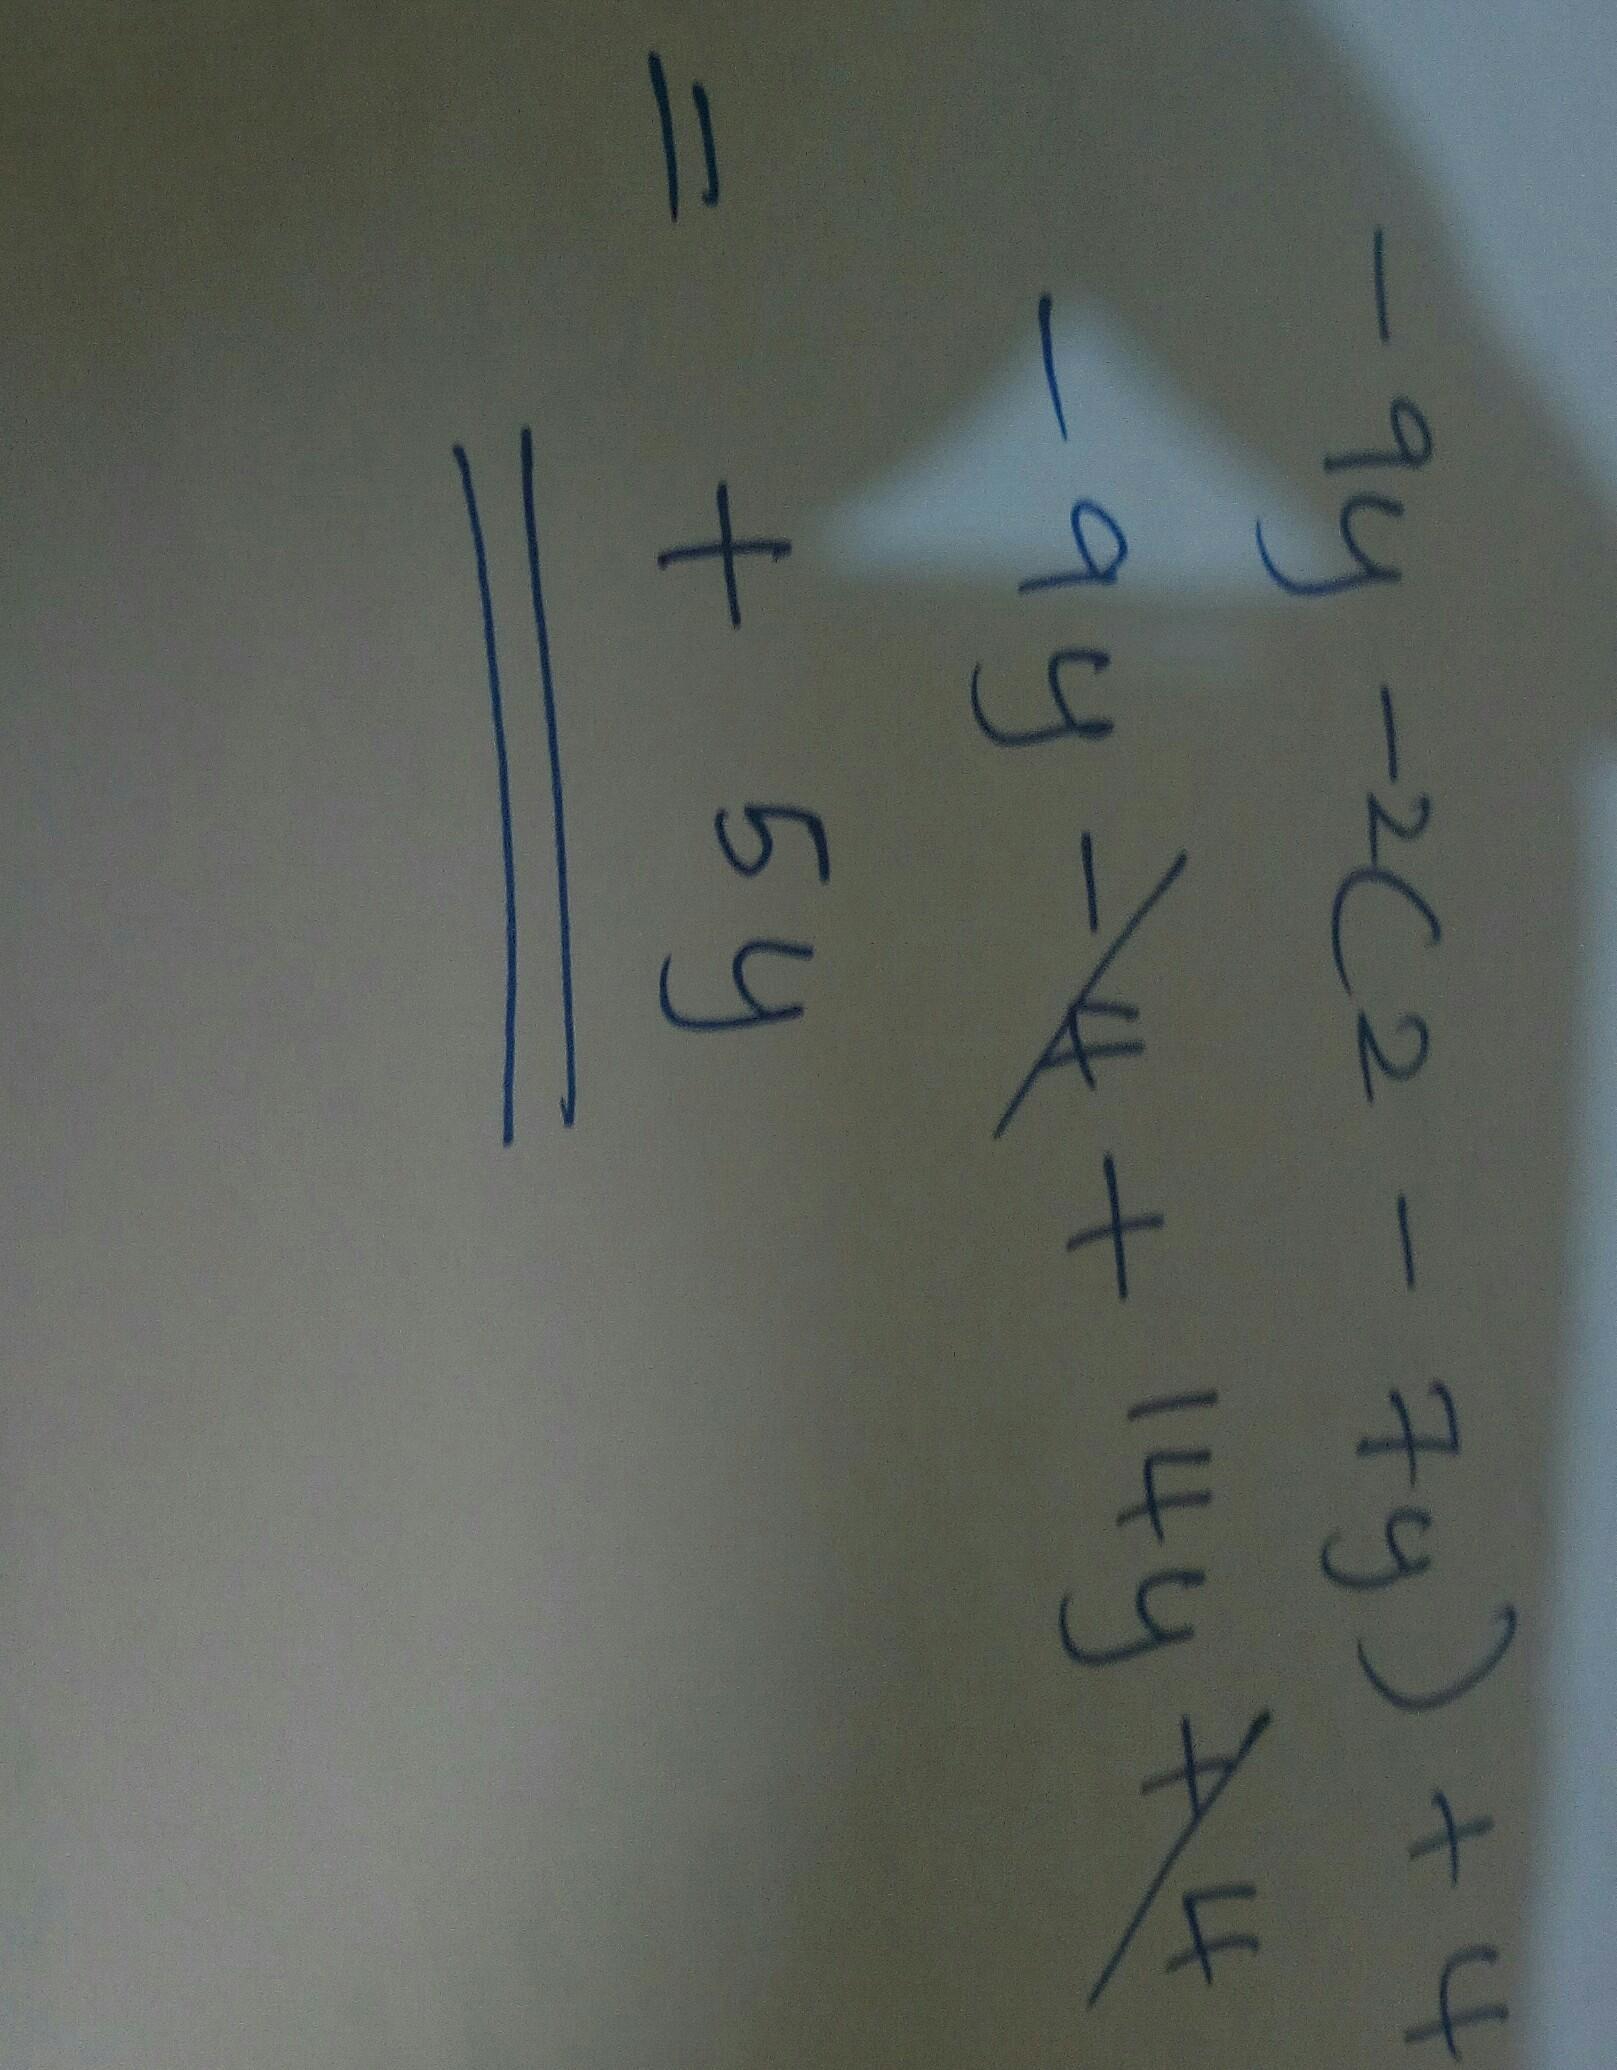 -9y -2(2 - 7y) + 4
-9y - 4 + 14y + 4
= + 5y